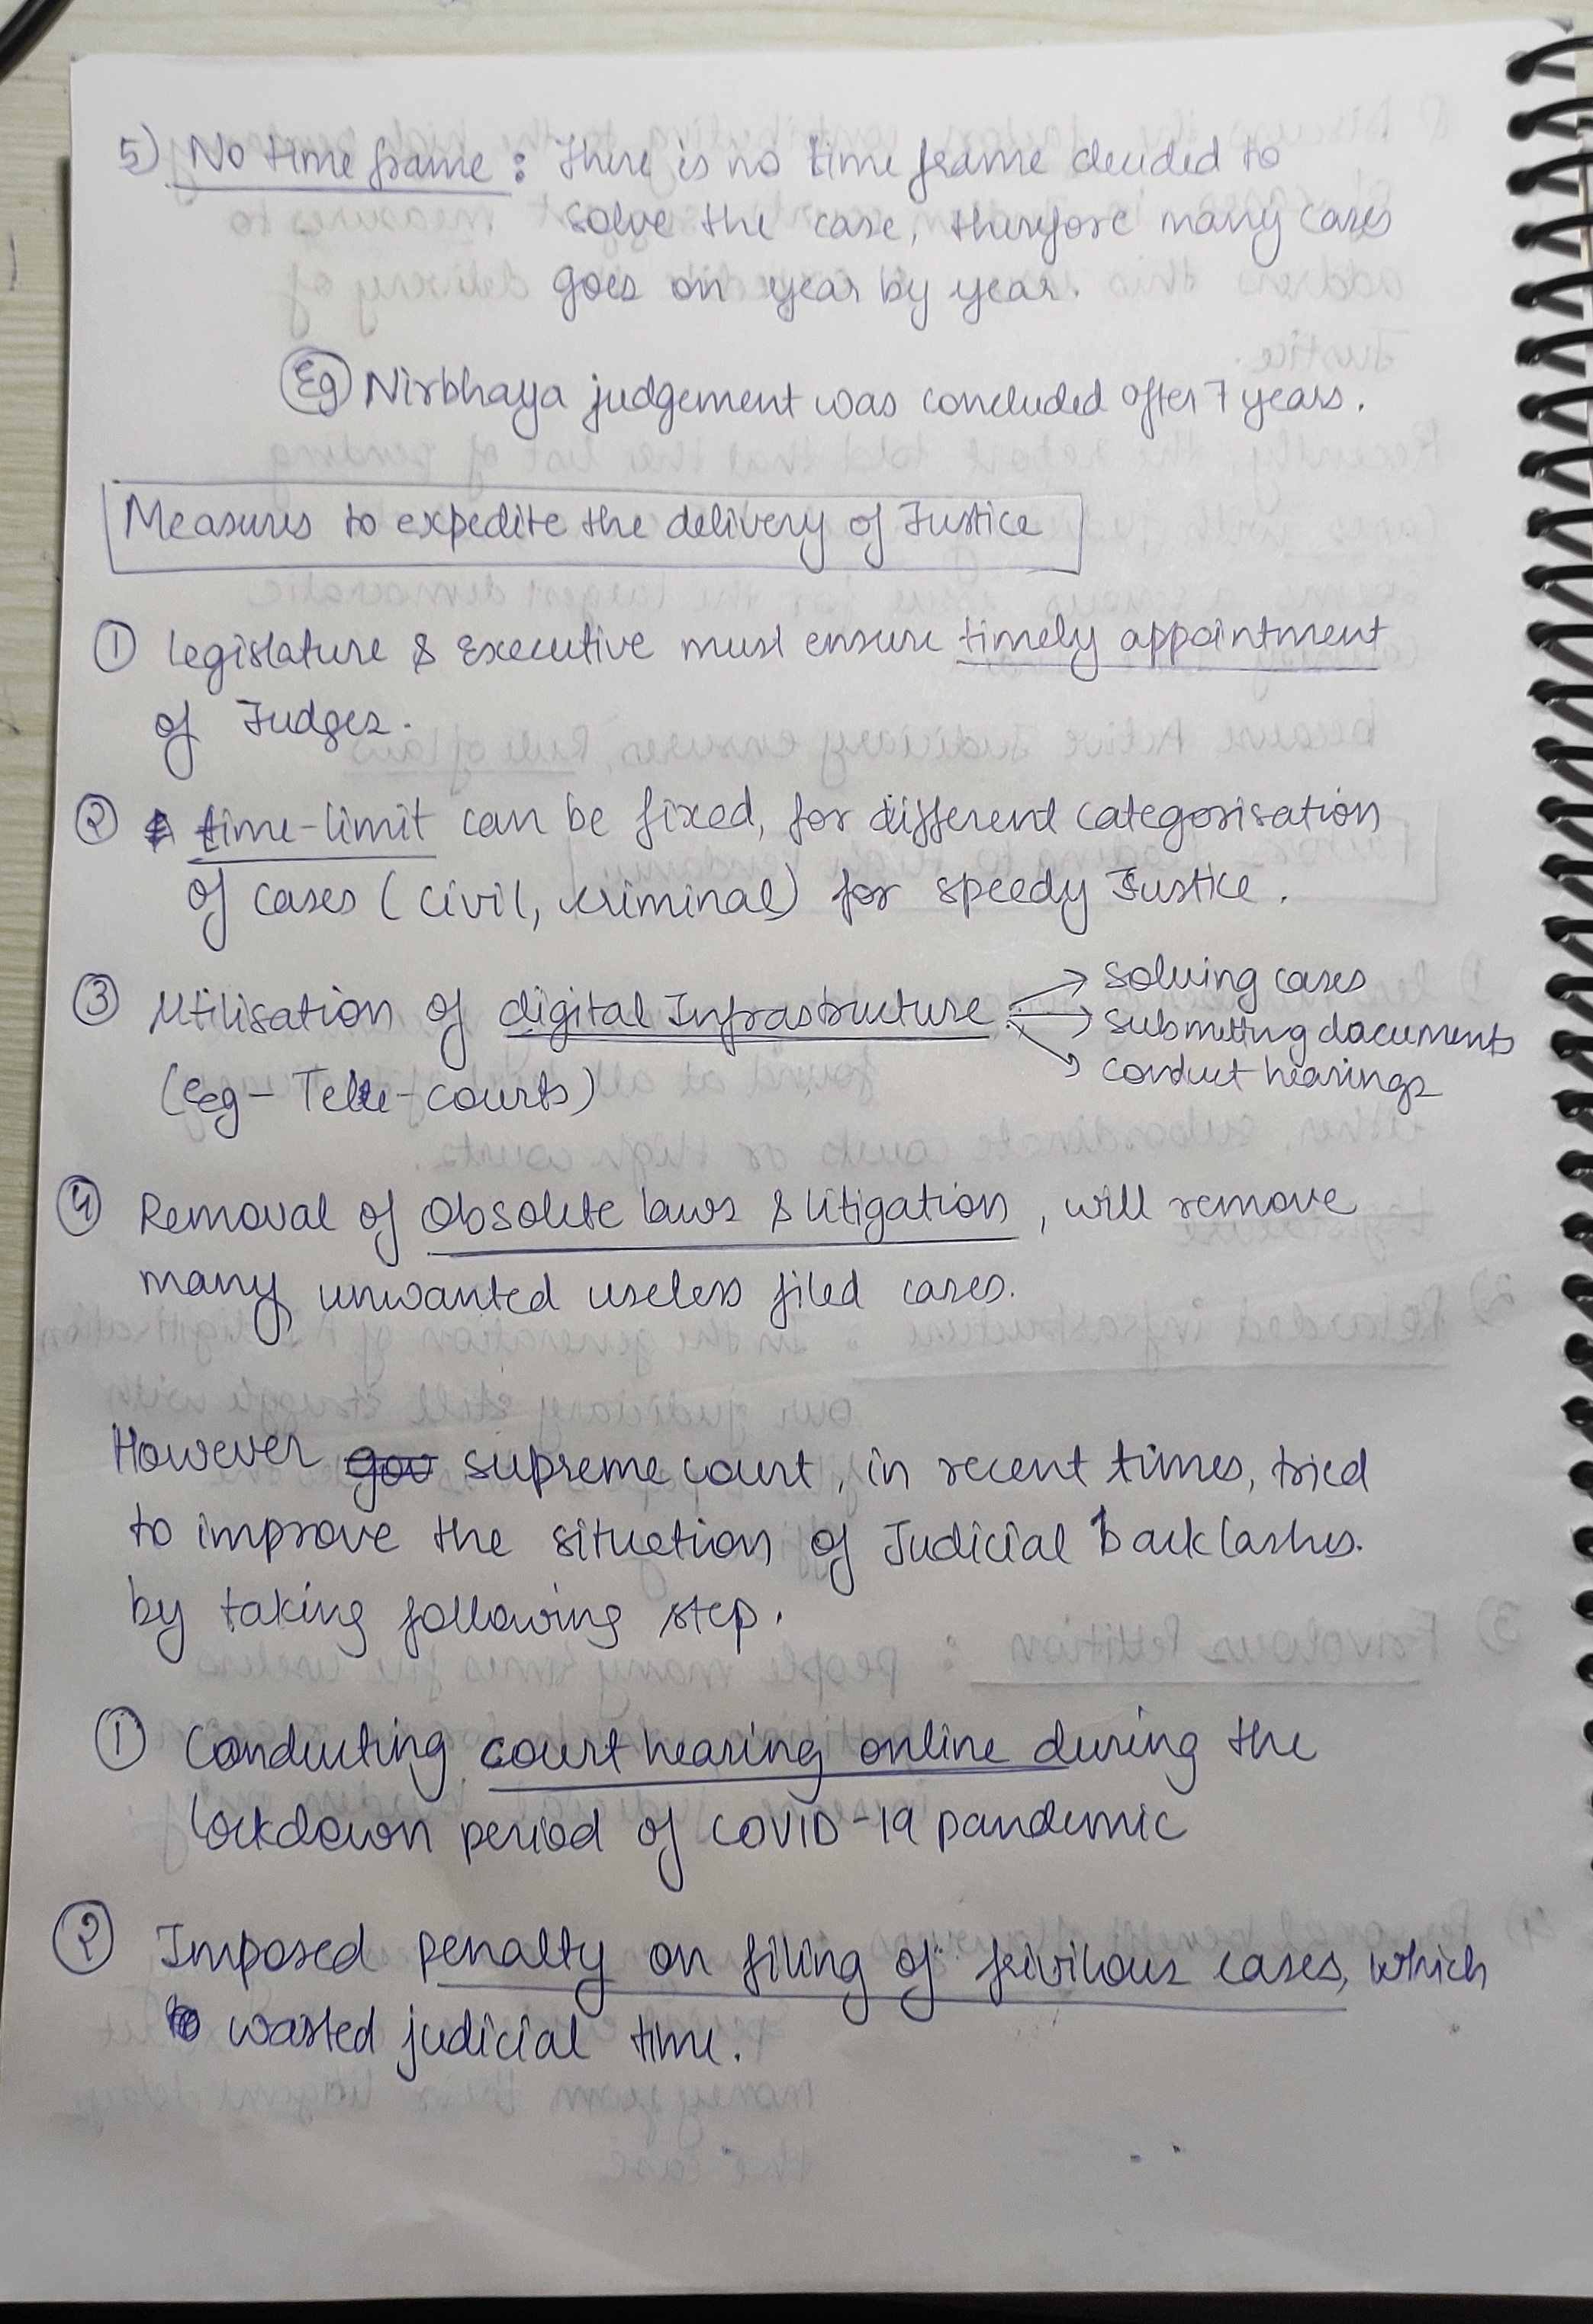 5) No time frame : There is no time frame decided to
solve the case, therefore many cases
goes on year by year.
Eg Nirbhaya judgement was concluded after 7 years.
Measures to expedite the delivery of Justice
① Legislature & Executive must ensure timely appointment
of Judges.
② time-limit can be fixed, for different categorisation
of cases (civil, criminal) for speedy Justice.
③ Utilisation of digital Infrastructure → solving cases
→ submitting documents
→ conduct hearings
(eg - Tele-courts)
④ Removal of obsolete laws & litigation, will remove
many unwanted useless filed cases.
However gov supreme court, in recent times, tried
to improve the situation of Judicial backlashes.
by taking following step.
① Conducting court hearing online during the
lockdown period of COVID-19 pandemic
② Imposed penalty on filing of frivilous cases, which
wasted judicial time.